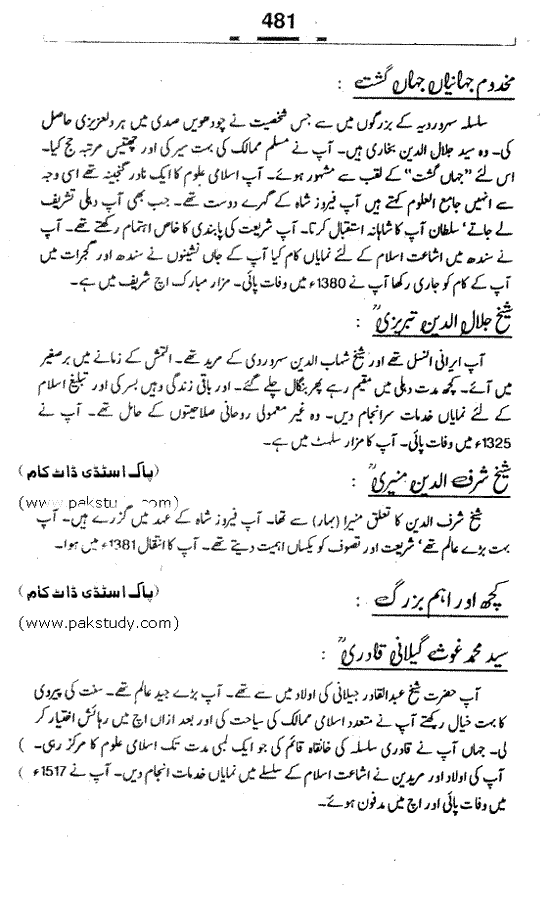 481
مخدوم جہانیاں جہاں گشت :
سلسلہ سہروردیہ کے بزرگوں میں سے جس شخصیت نے چودھویں صدی میں ہر دلعزیزی حاصل
کی۔ وہ سید جلال الدین بخاری ہیں۔ آپ نے مسلم ممالک کی بہت سیر کی اور چھتیس مرتبہ حج کیا۔
اس لئے "جہاں گشت" کے لقب سے مشہور ہوئے۔ آپ اسلامی علوم کا ایک نادر گنجینہ تھے اسی وجہ
سے انہیں جامع العلوم کہتے ہیں آپ فیروز شاہ کے گہرے دوست تھے۔ جب بھی آپ دہلی تشریف
لے جاتے' سلطان آپ کا شاہانہ استقبال کرتا۔ آپ شریعت کی پابندی کا خاص اہتمام رکھتے تھے۔ آپ
نے سندھ میں اشاعت اسلام کے لئے نمایاں کام کیا آپ کے جاں نشینوں نے سندھ اور گجرات میں
آپ کے کام کو جاری رکھا آپ نے 1380ء میں وفات پائی۔ مزار مبارک اچ شریف میں ہے۔
شیخ جلال الدین تبریزیؒ :
آپ ایرانی النسل تھے اور شیخ شہاب الدین سہروردی کے مرید تھے۔ التمش کے زمانے میں برصغیر
میں آئے۔ کچھ مدت دہلی میں مقیم رہے پھر بنگال چلے گئے۔ اور باقی زندگی وہیں بسر کی اور تبلیغ اسلام
کے لئے نمایاں خدمات سرانجام دیں۔ وہ غیر معمولی روحانی صلاحیتوں کے حامل تھے۔ آپ نے
1325ء میں وفات پائی۔ آپ کا مزار سلہٹ میں ہے۔
شیخ شرف الدین منیریؒ : (پاک اسٹڈی ڈاٹ کام)
(www.pakstudy.com)
شیخ شرف الدین کا تعلق منیرا (بہار) سے تھا۔ آپ فیروز شاہ کے عہد میں گزرے ہیں۔ آپ
بہت بڑے عالم تھے' شریعت اور تصوف کو یکساں اہمیت دیتے تھے۔ آپ کا انتقال 1381ء میں ہوا۔
کچھ اور اہم بزرگ : (پاک اسٹڈی ڈاٹ کام)
(www.pakstudy.com)
سید محمد غوث گیلانی قادریؒ :
آپ حضرت شیخ عبدالقادر جیلانی کی اولاد میں سے تھے۔ آپ بڑے جید عالم تھے۔ سنت کی پیروی
کا بہت خیال رکھتے آپ نے متعدد اسلامی ممالک کی سیاحت کی اور بعد ازاں اچ میں رہائش اختیار کر
لی۔ جہاں آپ نے قادری سلسلہ کی خانقاہ قائم کی جو ایک لمبی مدت تک اسلامی علوم کا مرکز رہی۔
آپ کی اولاد اور مریدین نے اشاعت اسلام کے سلسلے میں نمایاں خدمات انجام دیں۔ آپ نے 1517ء
میں وفات پائی اور اچ میں مدفون ہوئے۔